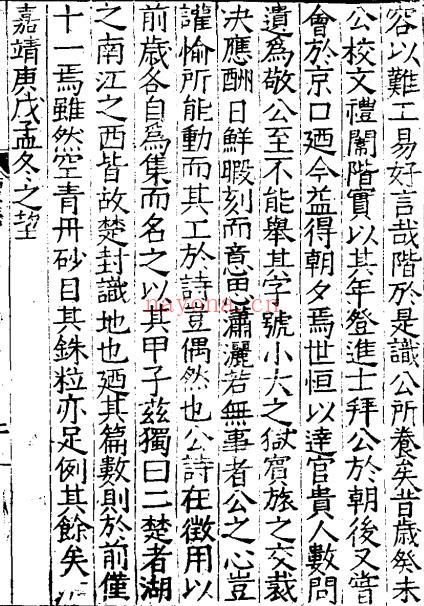 容以難工易好言哉階於是識公所養矣昔歲癸未
公校文禮闈階實以其年登進士拜公於朝後又嘗
會於京口廼今益得朝夕焉世恒以達官貴人數問
遺爲敬公至不能舉其字號小大之獄賓旅之交裁
决應酬日鮮暇刻而意思瀟灑若無事者公之心豈
讙愉所能動而其工於詩豈偶然也公詩在徵用以
前歲各自爲集而名之以其甲子茲獨曰二楚者湖
之南江之西皆故楚封識地也廼其篇數則於前僅
十一焉雖然空青丹砂目其銖粒亦足例其餘矣
嘉靖庚戌孟冬之望
nayona.cn